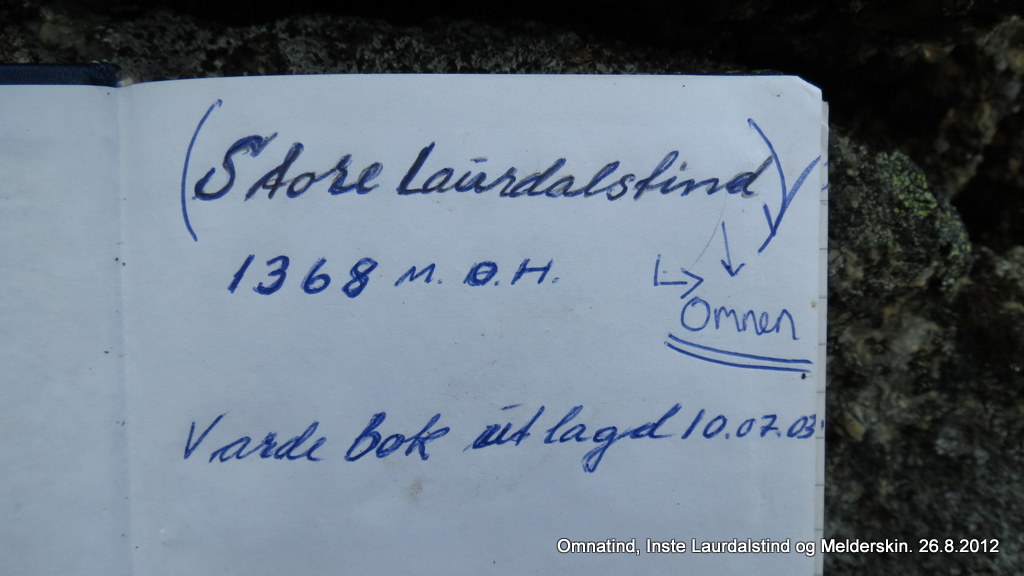 (Store Laurdalstind)
1368 M. Ø.H.
Omnen
Varde bok utlagd 10.07.03
Omnatind, Inste Laurdalstind og Melderskin. 26.8.2012